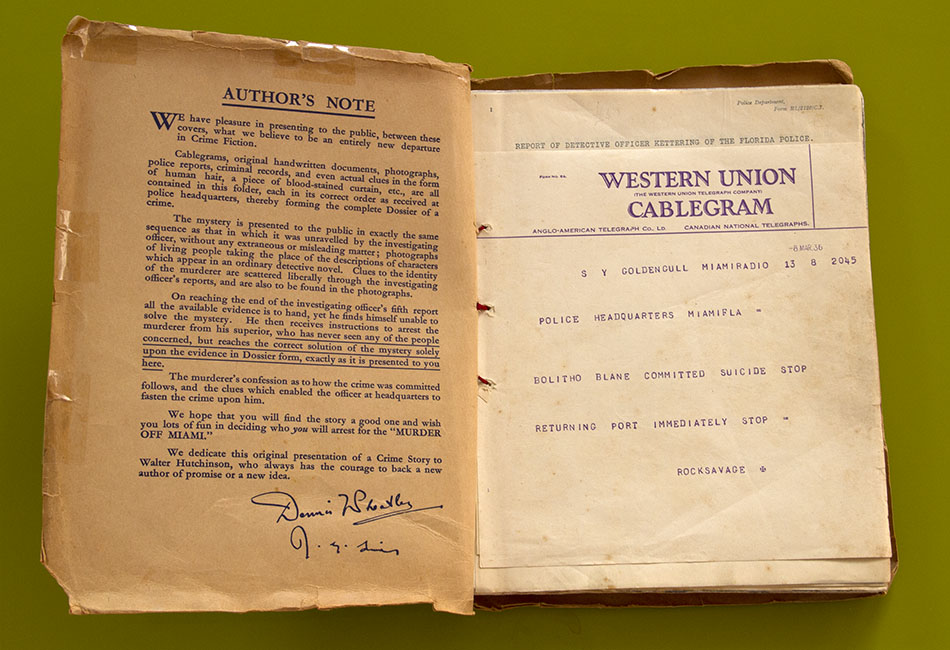 AUTHOR'S NOTE
WE have pleasure in presenting to the public, between these
covers, what we believe to be an entirely new departure
in Crime Fiction.
Cablegrams, original handwritten documents, photographs,
police reports, criminal records, and even actual clues in the form
of human hair, a piece of blood-stained curtain, etc., are all
contained in this folder, each in its correct order as received at
police headquarters, thereby forming the complete Dossier of a
crime.
The mystery is presented to the public in exactly the same
sequence as that in which it was unravelled by the investigating
officer, without any extraneous or misleading matter; photographs
of living people taking the place of the descriptions of characters
which appear in an ordinary detective novel. Clues to the identity
of the murderer are scattered liberally through the investigating
officer's reports, and are also to be found in the photographs.
On reaching the end of the investigating officer's fifth report
all the available evidence is to hand, yet he finds himself unable to
solve the mystery. He then receives instructions to arrest the
murderer from his superior, who has never seen any of the people
concerned, but reaches the correct solution of the mystery solely
upon the evidence in Dossier form, exactly as it is presented to you
here.
The murderer's confession as to how the crime was committed
follows, and the clues which enabled the officer at headquarters to
fasten the crime upon him.
We hope that you will find the story a good one and wish
you lots of fun in deciding who you will arrest for the "MURDER
OFF MIAMI."
We dedicate this original presentation of a Crime Story to
Walter Hutchinson, who always has the courage to back a new
author of promise or a new idea.
Dennis Wheatley
J. G. Links
1
Police Department,
REPORT OF DETECTIVE OFFICER KETTERING OF THE FLORIDA POLICE.
FORM NO. 6A.
WESTERN UNION
(THE WESTERN UNION TELEGRAPH COMPANY)
CABLEGRAM
ANGLO-AMERICAN TELEGRAPH CO., LD. CANADIAN NATIONAL TELEGRAPHS.
-8 MAR.36
S Y GOLDENGULL MIAMIRADIO 13 8 2045
POLICE HEADQUARTERS MIAMIFLA =
BOLITHO BLANE COMMITTED SUICIDE STOP
RETURNING PORT IMMEDIATELY STOP =
ROCKSAVAGE +